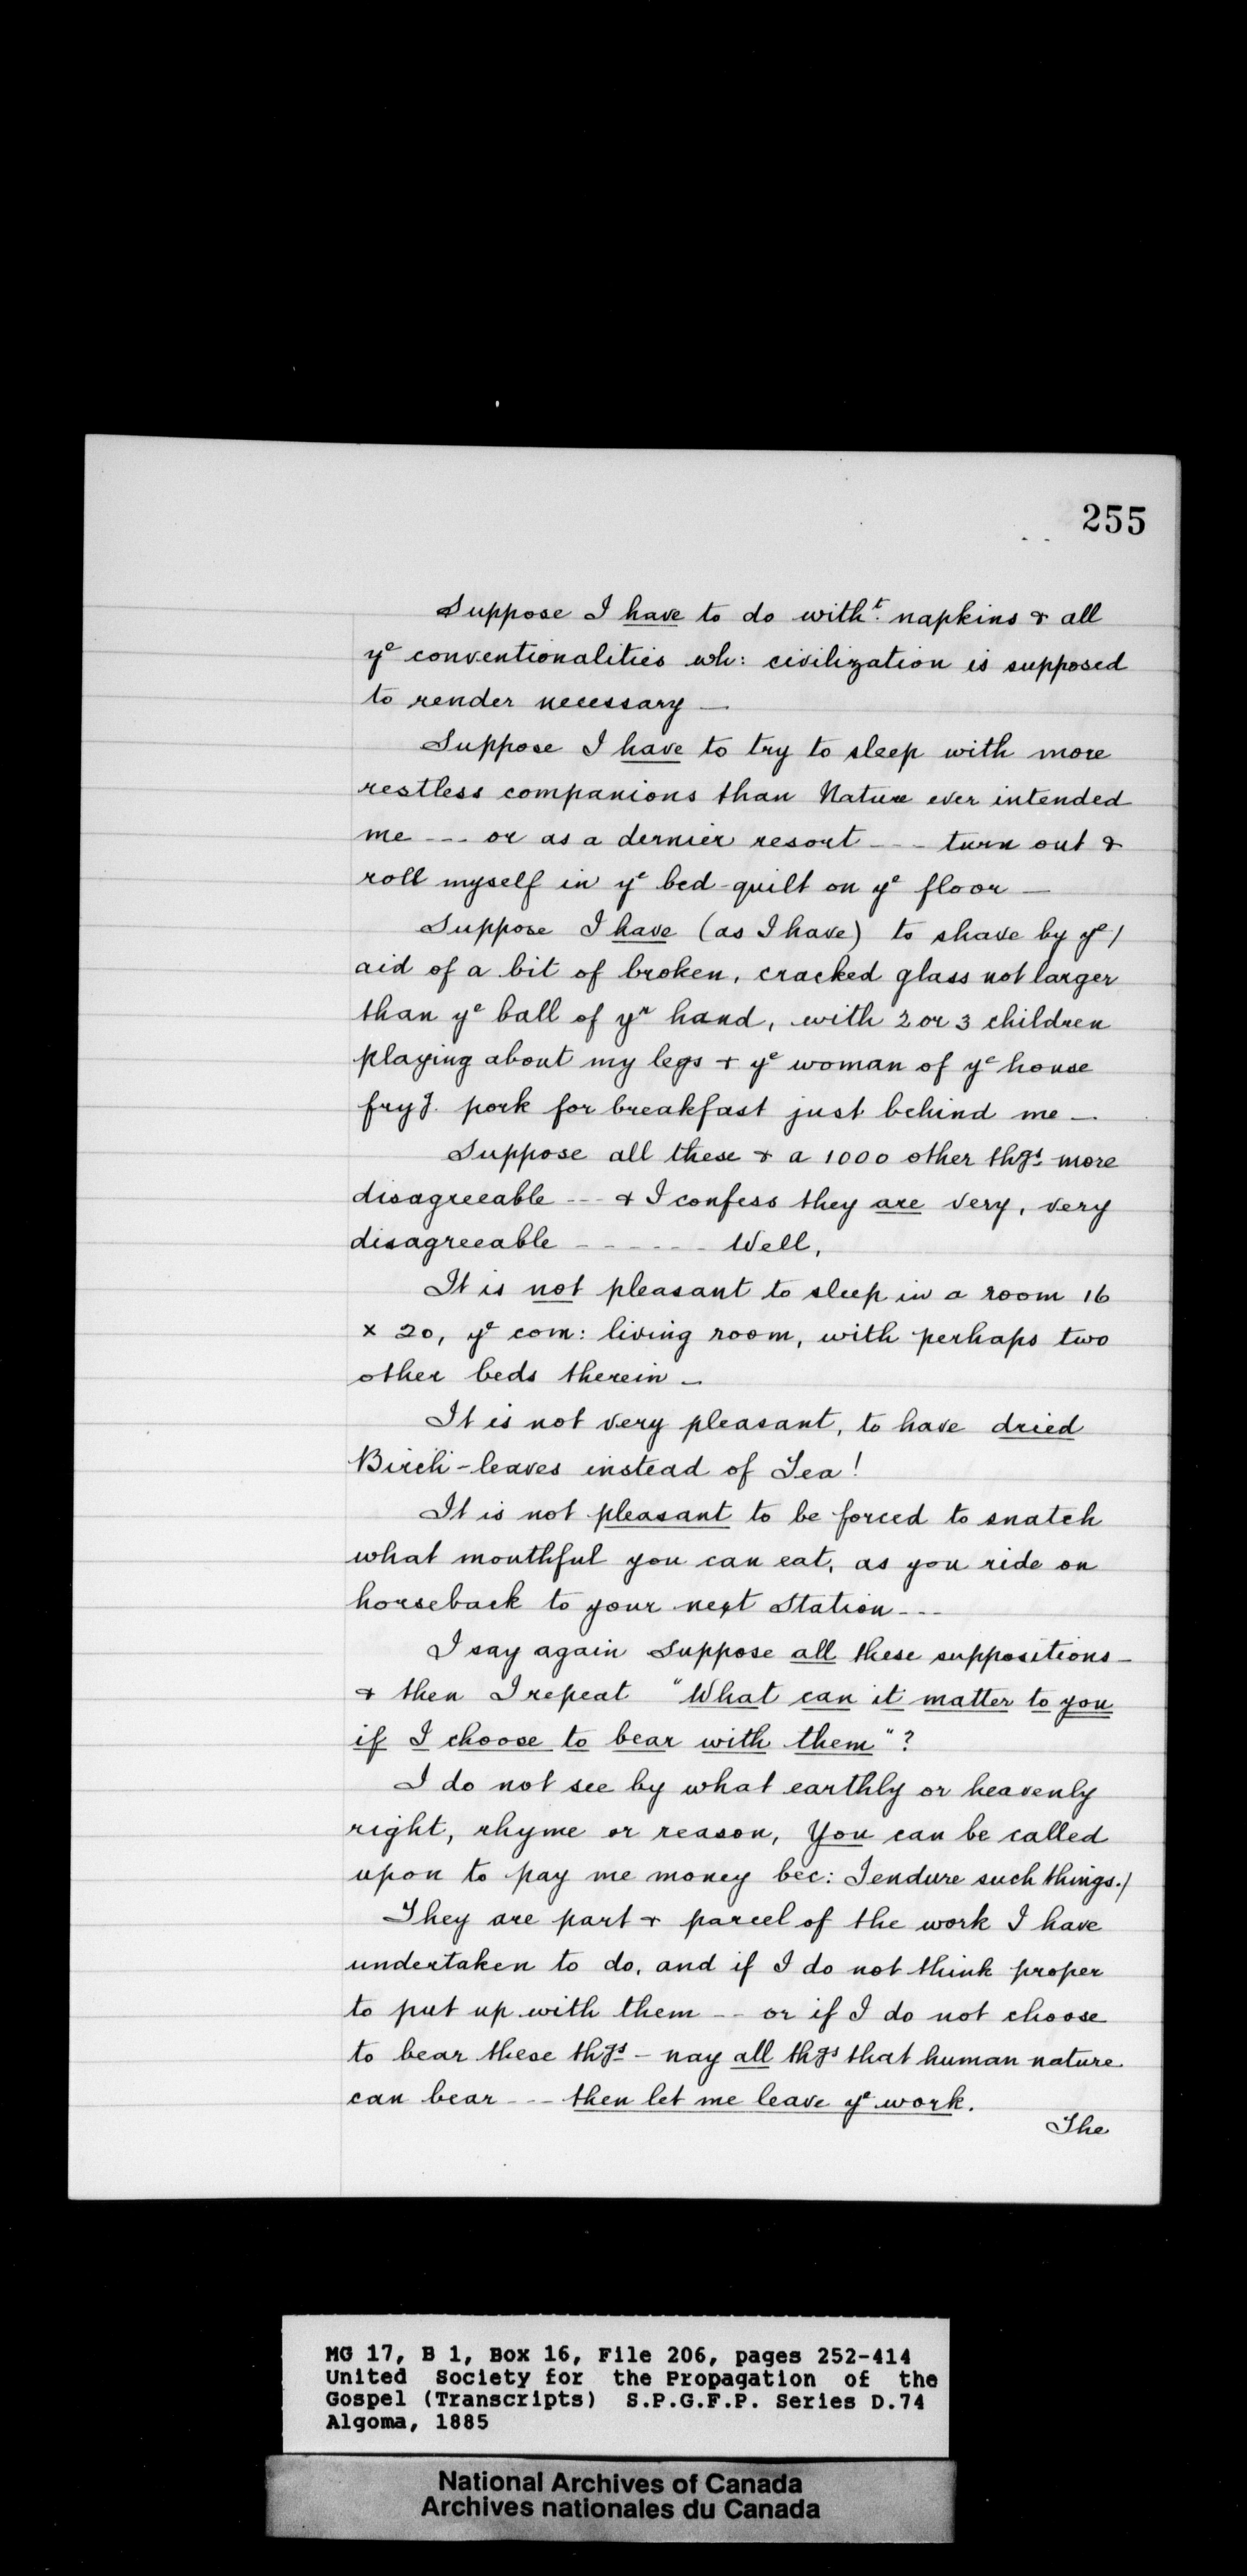 255
Suppose I have to do with^t. napkins & all
y^e conventionalities wh: civilization is supposed
to render necessary —
Suppose I have to try to sleep with more
restless companions than Nature ever intended
me --- or as a dernier resort --- turn out &
roll myself in y^e bed-quilt on y^e floor —
Suppose I have (as I have) to shave by y^e/
aid of a bit of broken, cracked glass not larger
than y^e ball of y^r hand, with 2 or 3 children
playing about my legs & y^e woman of y^e house
fryg. pork for breakfast just behind me —
Suppose all these & a 1000 other thgs. more
disagreeable --- & I confess they are very, very
disagreeable ------ Well,
It is not pleasant to sleep in a room 16
x 20, y^e com: living room, with perhaps two
other beds therein —
It is not very pleasant, to have dried
Birch-leaves instead of Tea!
It is not pleasant to be forced to snatch
what mouthful you can eat, as you ride on
horseback to your next Station ---
I say again Suppose all these suppositions —
& then I repeat "What can it matter to you
if I choose to bear with them"?
I do not see by what earthly or heavenly
right, rhyme or reason, You can be called
upon to pay me money bec: I endure such things./
They are part & parcel of the work I have
undertaken to do, and if I do not think proper
to put up with them -- or if I do not choose
to bear these thgs - nay all thgs that human nature
can bear --- then let me leave y^e work.
The
MG 17, B 1, Box 16, File 206, pages 252-414
United Society for the Propagation of the
Gospel (Transcripts) S.P.G.F.P. Series D.74
Algoma, 1885
National Archives of Canada
Archives nationales du Canada